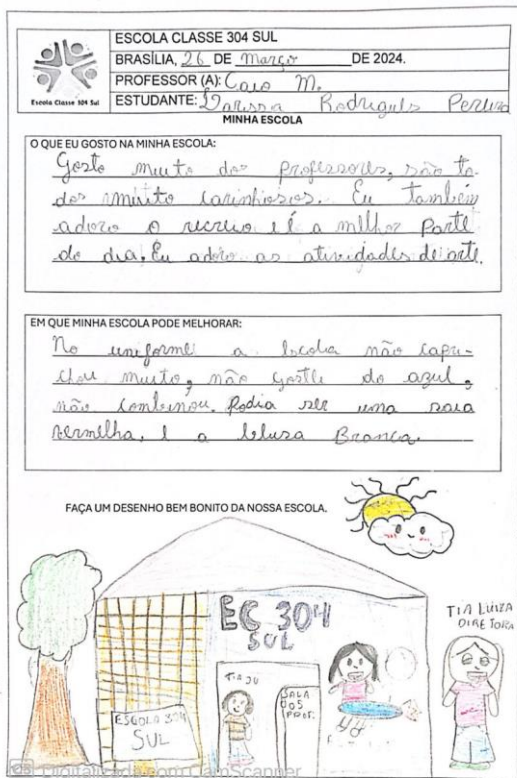 ESCOLA CLASSE 304 SUL
BRASÍLIA, 26 DE Março DE 2024.
PROFESSOR (A): Caio M.
ESTUDANTE: Larissa Rodrigues Pereira
Escola Classe 304 Sul
MINHA ESCOLA
O QUE EU GOSTO NA MINHA ESCOLA:
Gosto muito dos professores, são to-
dos muito carinhosos. Eu também
adoro o recreio e é a melhor Parte
do dia. Eu adoro as atividades de arte.
EM QUE MINHA ESCOLA PODE MELHORAR:
No uniforme a escola não capri-
chou muito, não gostei do azul,
não combinou. Podia ser uma saia
vermelha, e a blusa Branca.
FAÇA UM DESENHO BEM BONITO DA NOSSA ESCOLA.
EC 304
SUL
TIA LUIZA
DIRETORA
TIA JU
SALA
DOS
PROF.
ESCOLA 304
SUL
CS Digitalizada com CamScanner